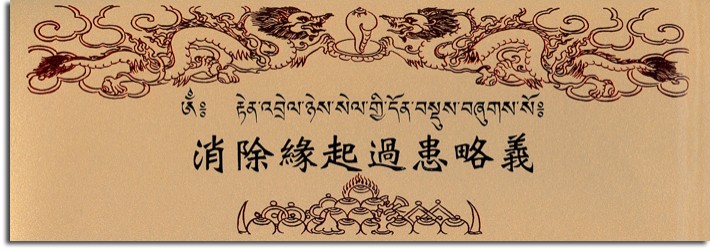 ༀ༔ རྟེན་འབྲེལ་ཉེས་སེལ་གྱི་དོན་བསྡུས་བཞུགས་སོ༔
消除緣起過患略義